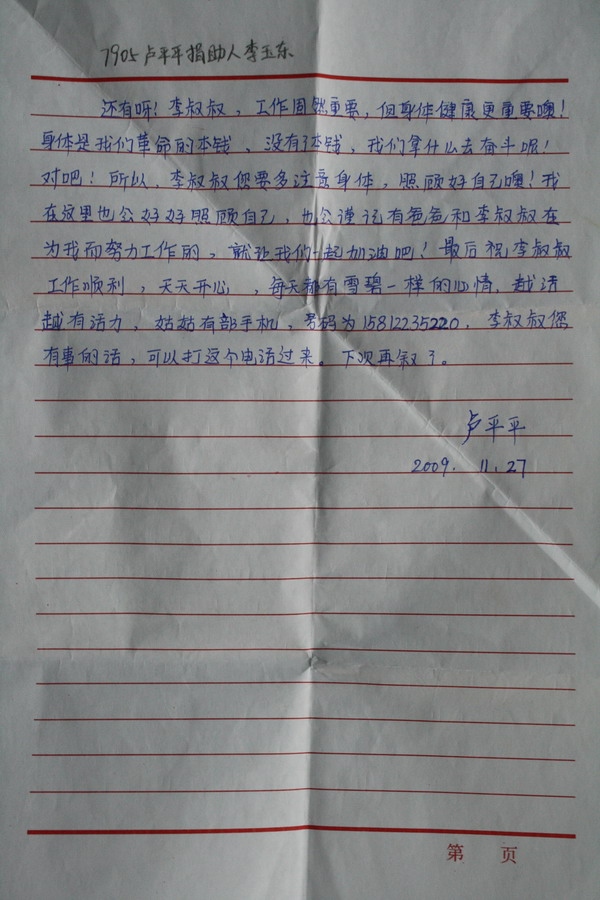 7905卢平平捐助人李玉东
还有呀！李叔叔，工作固然重要，但身体健康更重要噢！
身体是我们革命的本钱，没有了本钱，我们拿什么去奋斗呢！
对吧！所以，李叔叔您要多注意身体，照顾好自己噢！我
在这里也会好好照顾自己，也会谨记有爸爸和李叔叔在
为我而努力工作的，就让我们一起加油吧！最后祝李叔叔
工作顺利，天天开心，每天都有雪碧一样的心情，越活
越有活力，姑姑有部手机，号码为15812235220，李叔叔您
有事的话，可以打这个电话过来。下次再叙了。
卢平平
2009.11.27
第 页